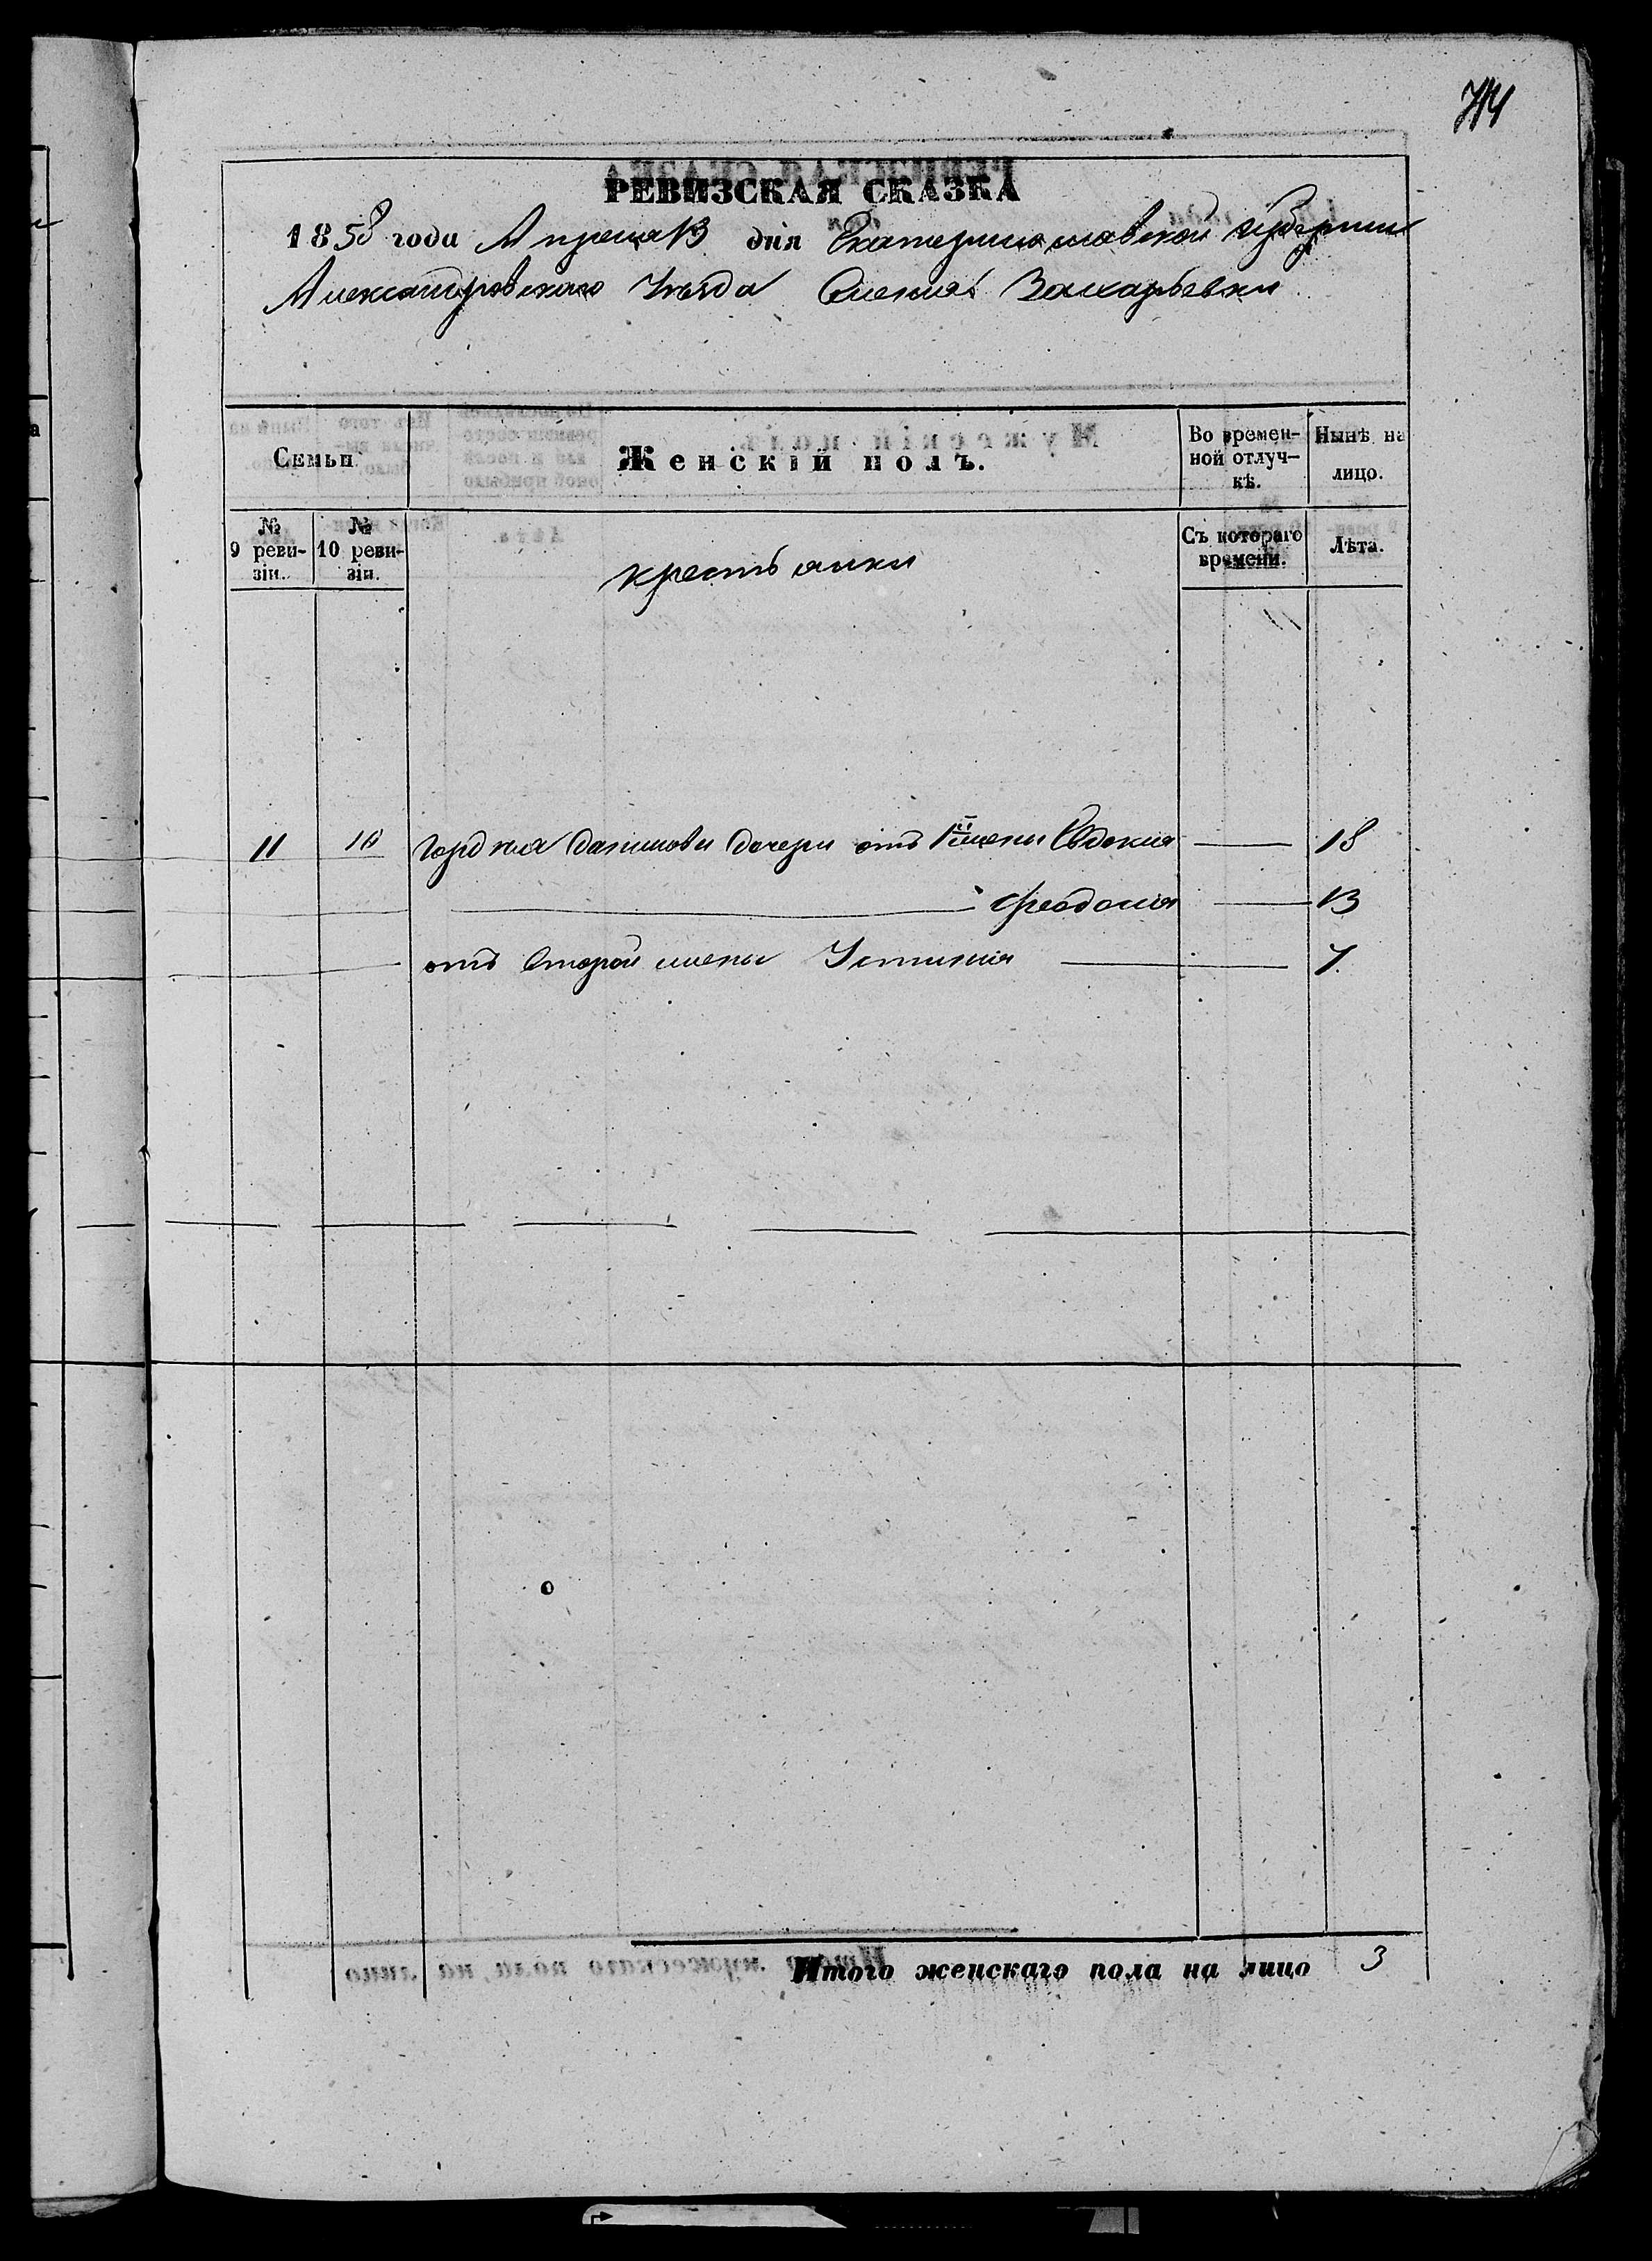 РЕВИЗСКАЯ СКАЗКА
1858 года Апреля 13 дня Екатеринославской губернии
Александровскаго Уезда Селения Захарьевки
Семьи.
Женскій полъ.
Во времен-
ной отлуч-
кѣ.
Нынѣ на
лицо.
№
9 реви-
зіи.
№
10 реви-
зіи.
крестьянки
Съ котораго
времени.
Лѣта.
11 10 дочери отъ жены Евдокия 18
Феодосия 13
отъ второй жены Устиния 7
Итого женскаго пола на лицо 3